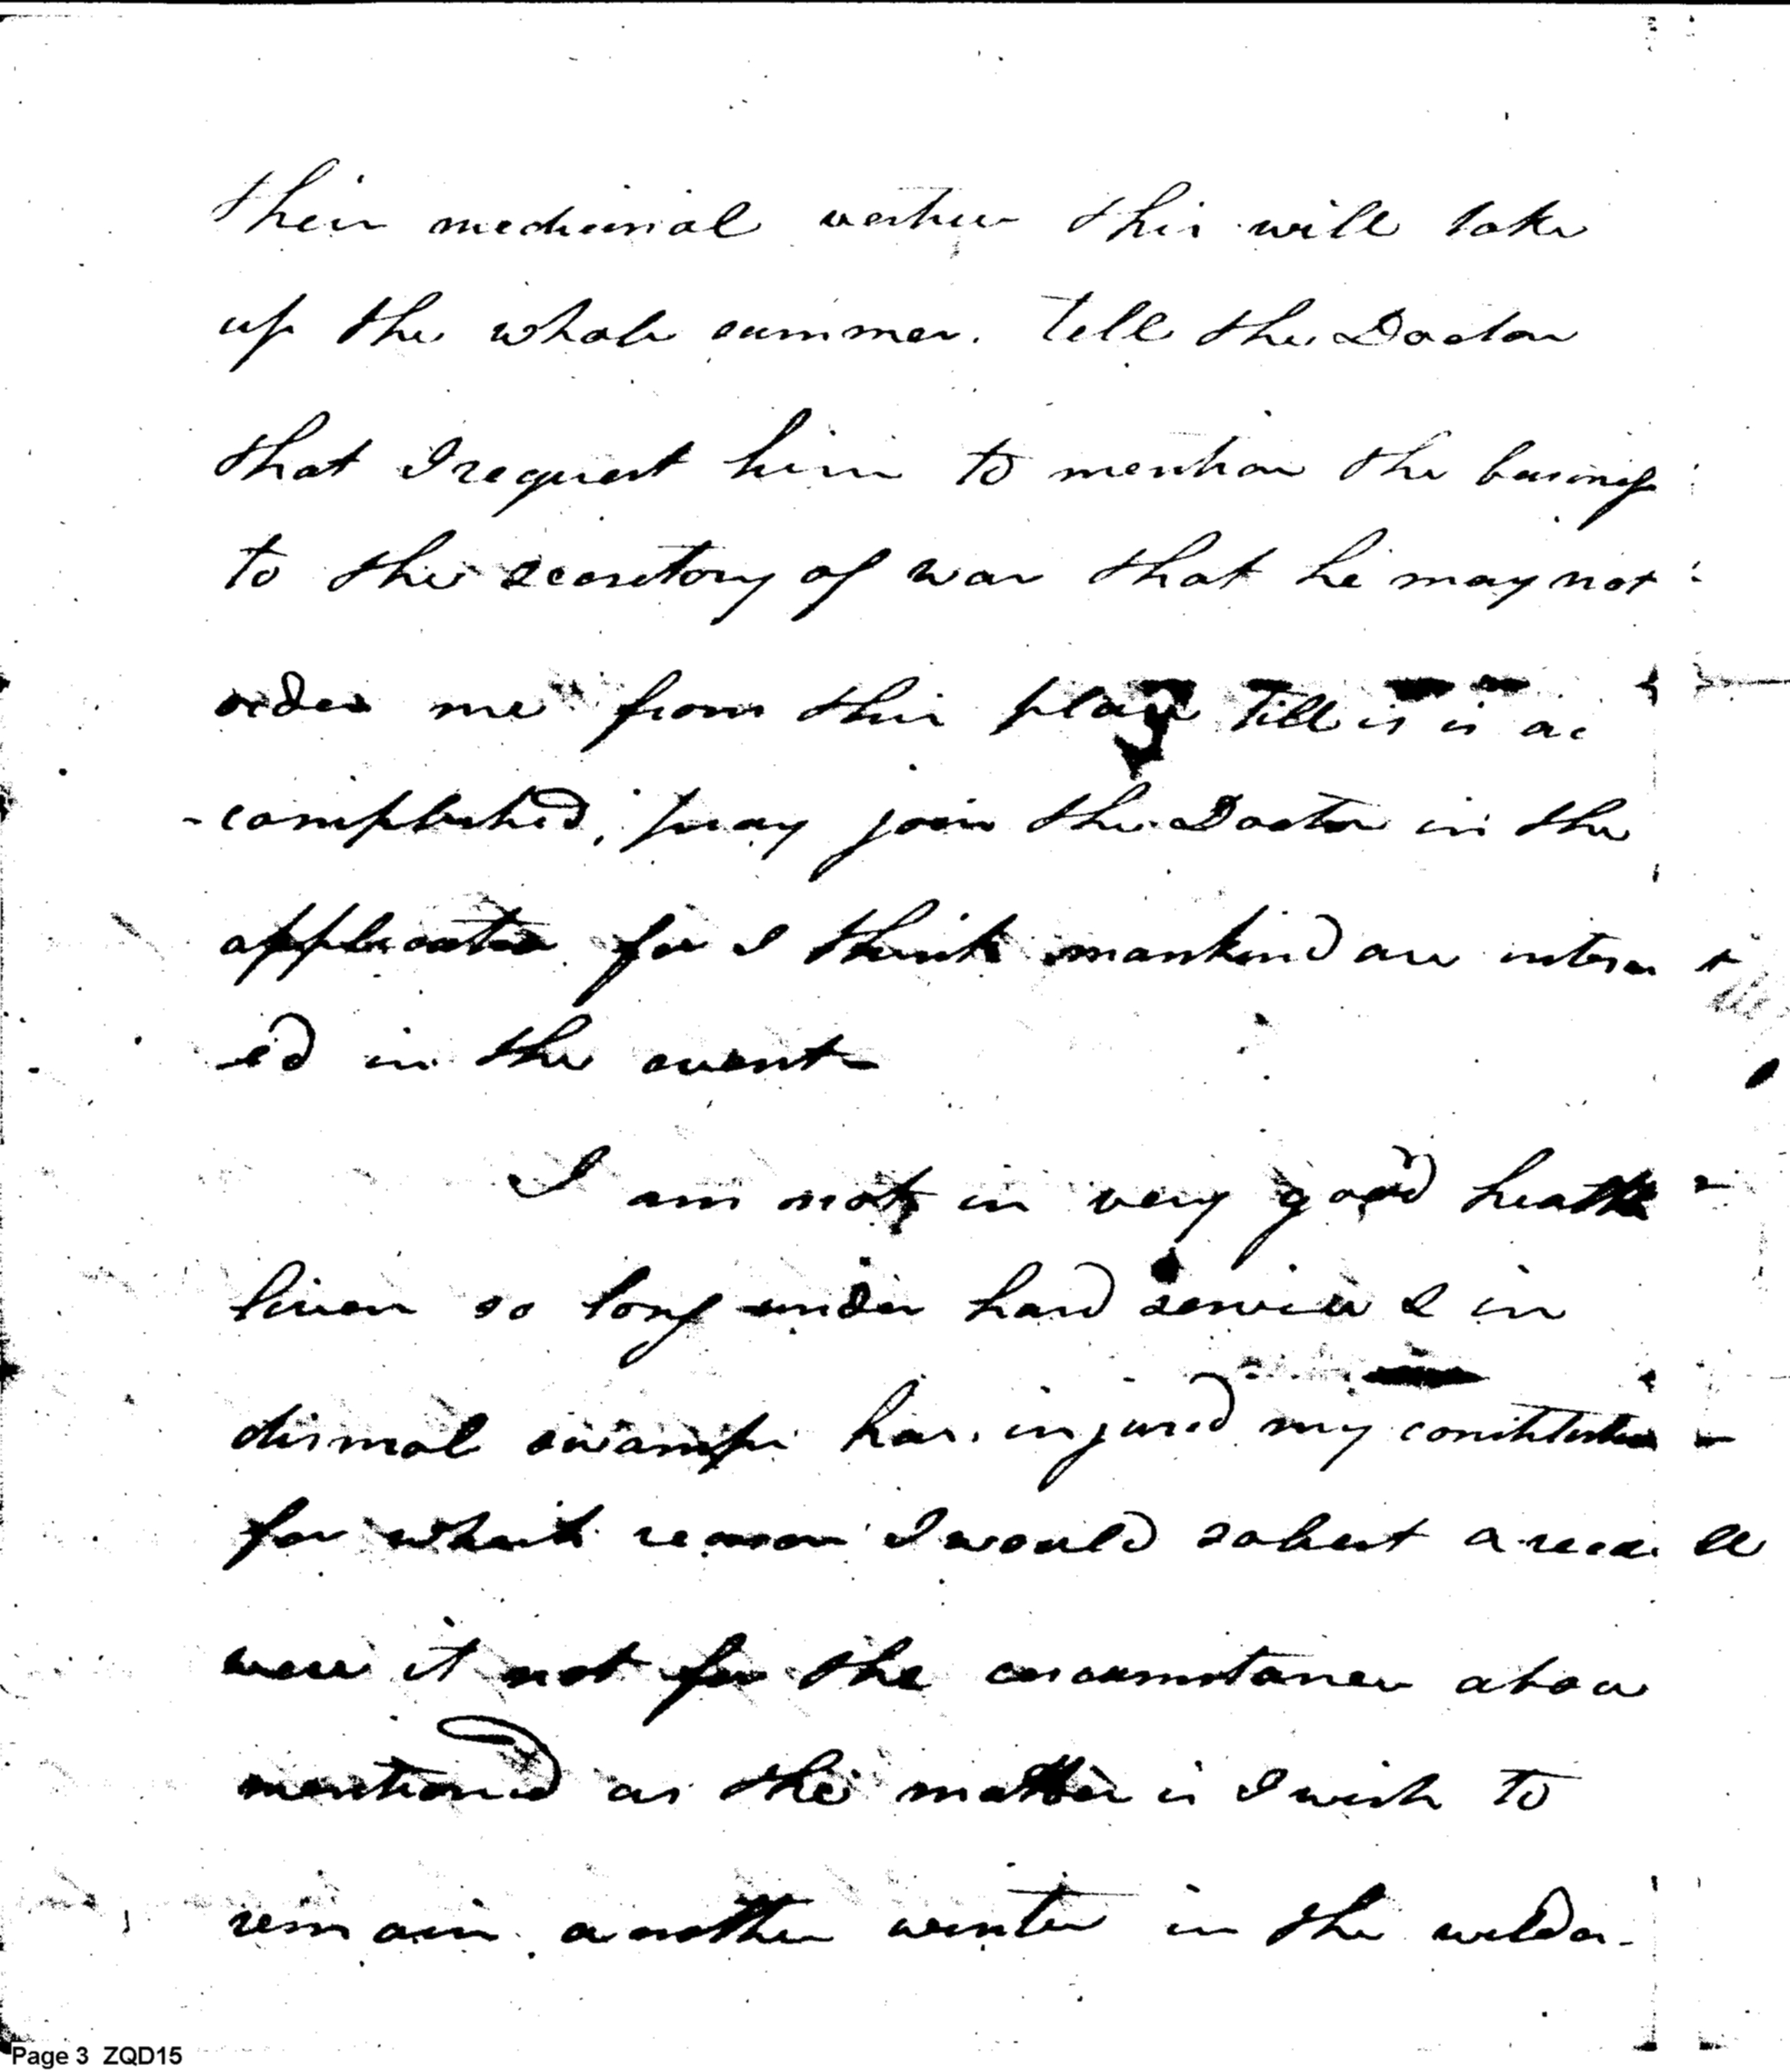 their medicinal vertues this will take
up the whole summer. Tell the Doctor
that I request him to mention the business
to the secretory of war that he may not
order me from this place till is is ac
-complished, pray join the Doctor in the
application for I think mankind are interest
ed in the event
I am not in very good health
living so long under hard service & in
dismal swamps has injured my constitution
for which reason I would solicit a recall
were it not for the circumstances above
mentioned as the matter is I wish to
remain another winter in the wilder-
Page 3 ZQD15